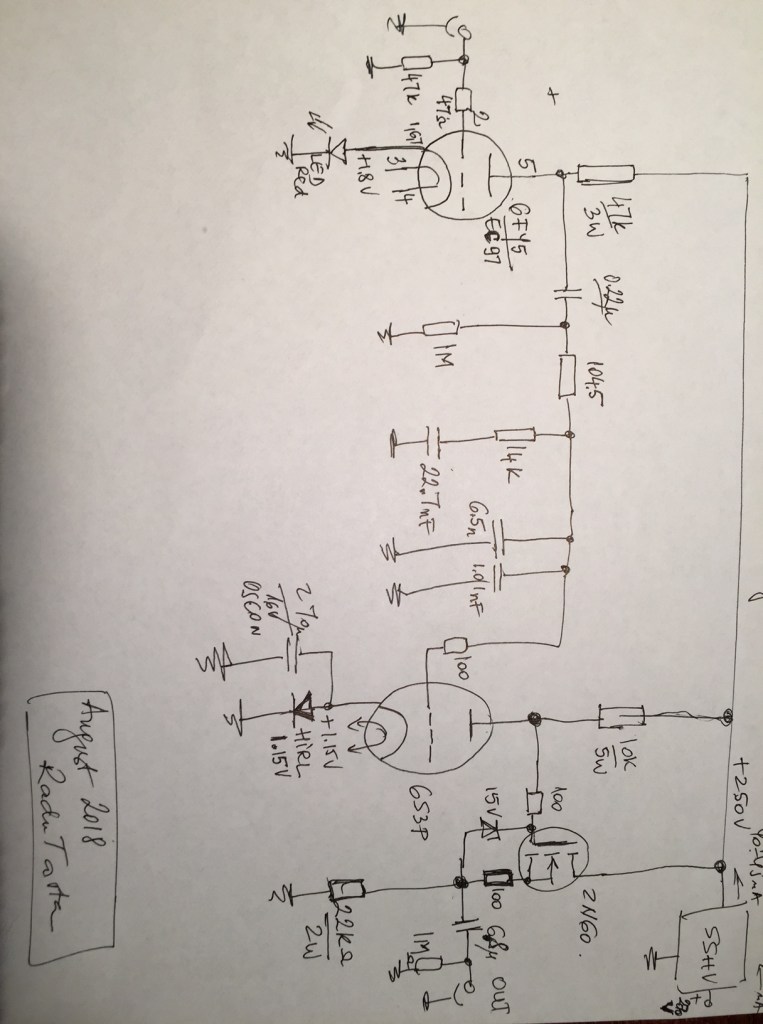 47k
47Ω
2
+
1,6,7
3
4
5
+1.8V
LED
Red
6FY5
EC97
47k
3W
0.22μ
1M
104.5
14K
22.7nF
6.5n
1.01nF
100
270μ
16V
OSCON
+1.15V
HIRL
1.15V
6S3P
10K
5W
+250V
100
15V
2N60.
100
22kΩ
2W
68μ
1MΩ
OUT
SSHV
+
August 2018
Radu Tarta